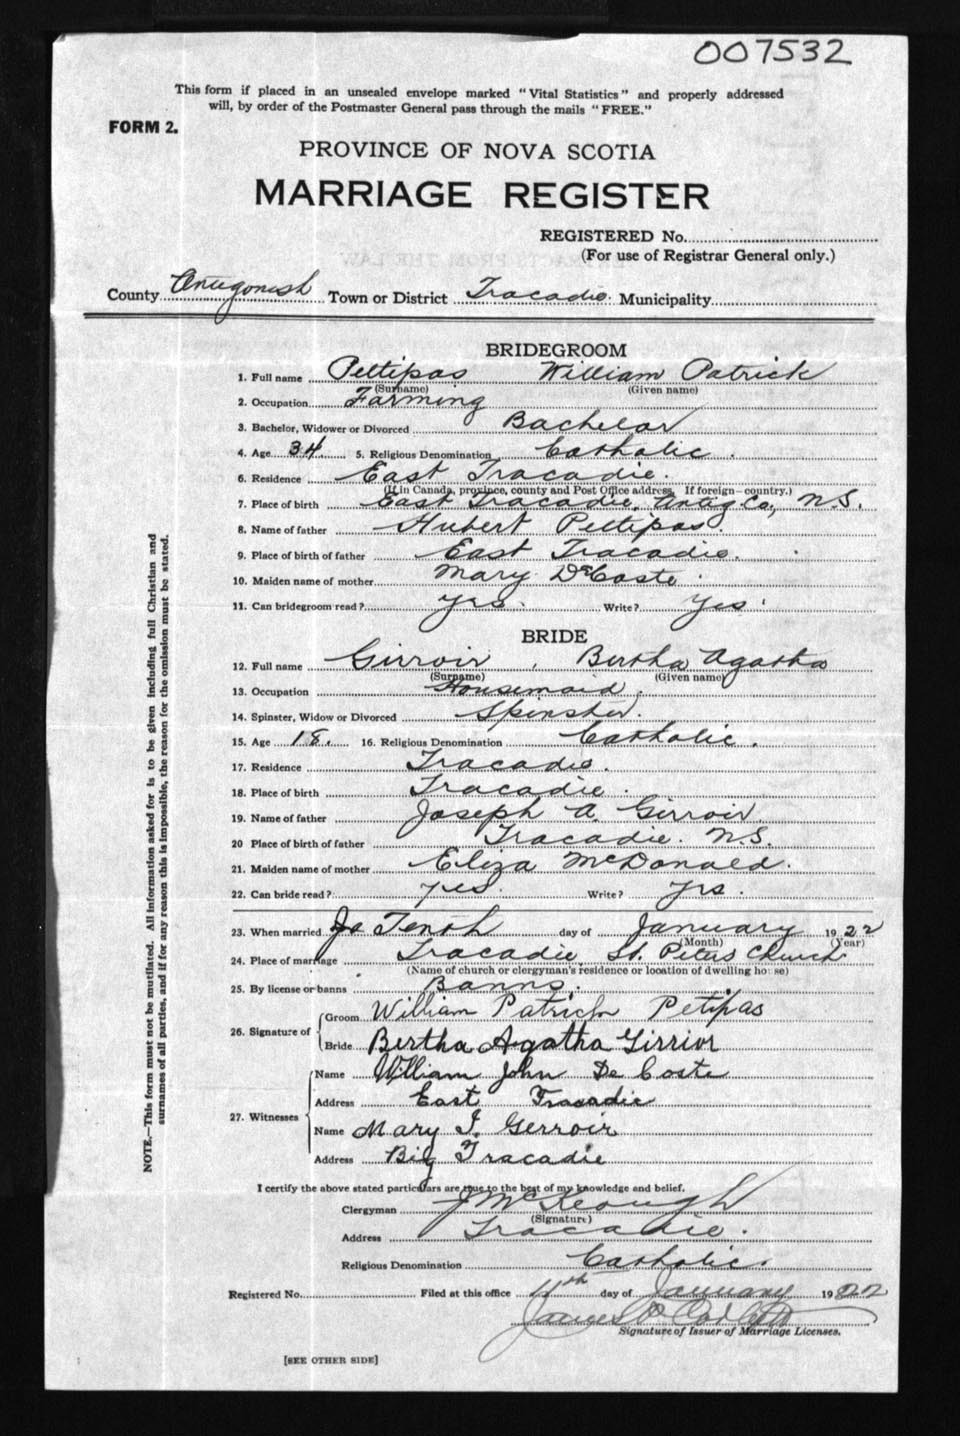 007532
This form if placed in an unsealed envelope marked "Vital Statistics" and properly addressed
will, by order of the Postmaster General pass through the mails "FREE."
FORM 2.
PROVINCE OF NOVA SCOTIA
MARRIAGE REGISTER
REGISTERED No.
(For use of Registrar General only.)
County Antigonish Town or District Tracadie. Municipality
BRIDEGROOM
1. Full name Pettipas William Patrick
(Surname) (Given name)
2. Occupation Farming
3. Bachelor, Widower or Divorced Bachelor
4. Age 34 5. Religious Denomination Catholic.
6. Residence East Tracadie.
(If in Canada, province, county and Post Office address. If foreign—country.)
7. Place of birth East Tracadie, Antig Co., N.S.
8. Name of father Hubert Pettipas.
9. Place of birth of father East Tracadie.
10. Maiden name of mother Mary DeCoste.
11. Can bridegroom read? yes. Write? yes.
BRIDE
12. Full name Girroir, Bertha Agatha
(Surname) (Given name)
13. Occupation Housemaid.
14. Spinster, Widow or Divorced Spinster.
15. Age 18. 16. Religious Denomination Catholic.
17. Residence Tracadie.
18. Place of birth Tracadie.
19. Name of father Joseph A. Girroir.
20 Place of birth of father Tracadie. N.S.
21. Maiden name of mother Eliza McDonald.
22. Can bride read? yes. Write? yes.
23. When married Tenth day of January 1922
(Month) (Year)
24. Place of marriage Tracadie, St. Peters Church
(Name of church or clergyman's residence or location of dwelling house)
25. By license or banns Banns.
26. Signature of Groom William Patrick Petipas
Bride Bertha Agatha Girrior
27. Witnesses Name William John De Coste
Address East Tracadie
Name Mary J. Gerroir
Address Big Tracadie
I certify the above stated particulars are true to the best of my knowledge and belief.
Clergyman J McKeough
(Signature)
Address Tracadie.
Religious Denomination Catholic.
Registered No. Filed at this office 11th day of January 1922
James
Signature of Issuer of Marriage Licenses.
[SEE OTHER SIDE]
NOTE.—This form must not be mutilated. All information asked for is to be given including full Christian and
surnames of all parties, and if for any reason this is impossible, the reason for the omission must be stated.